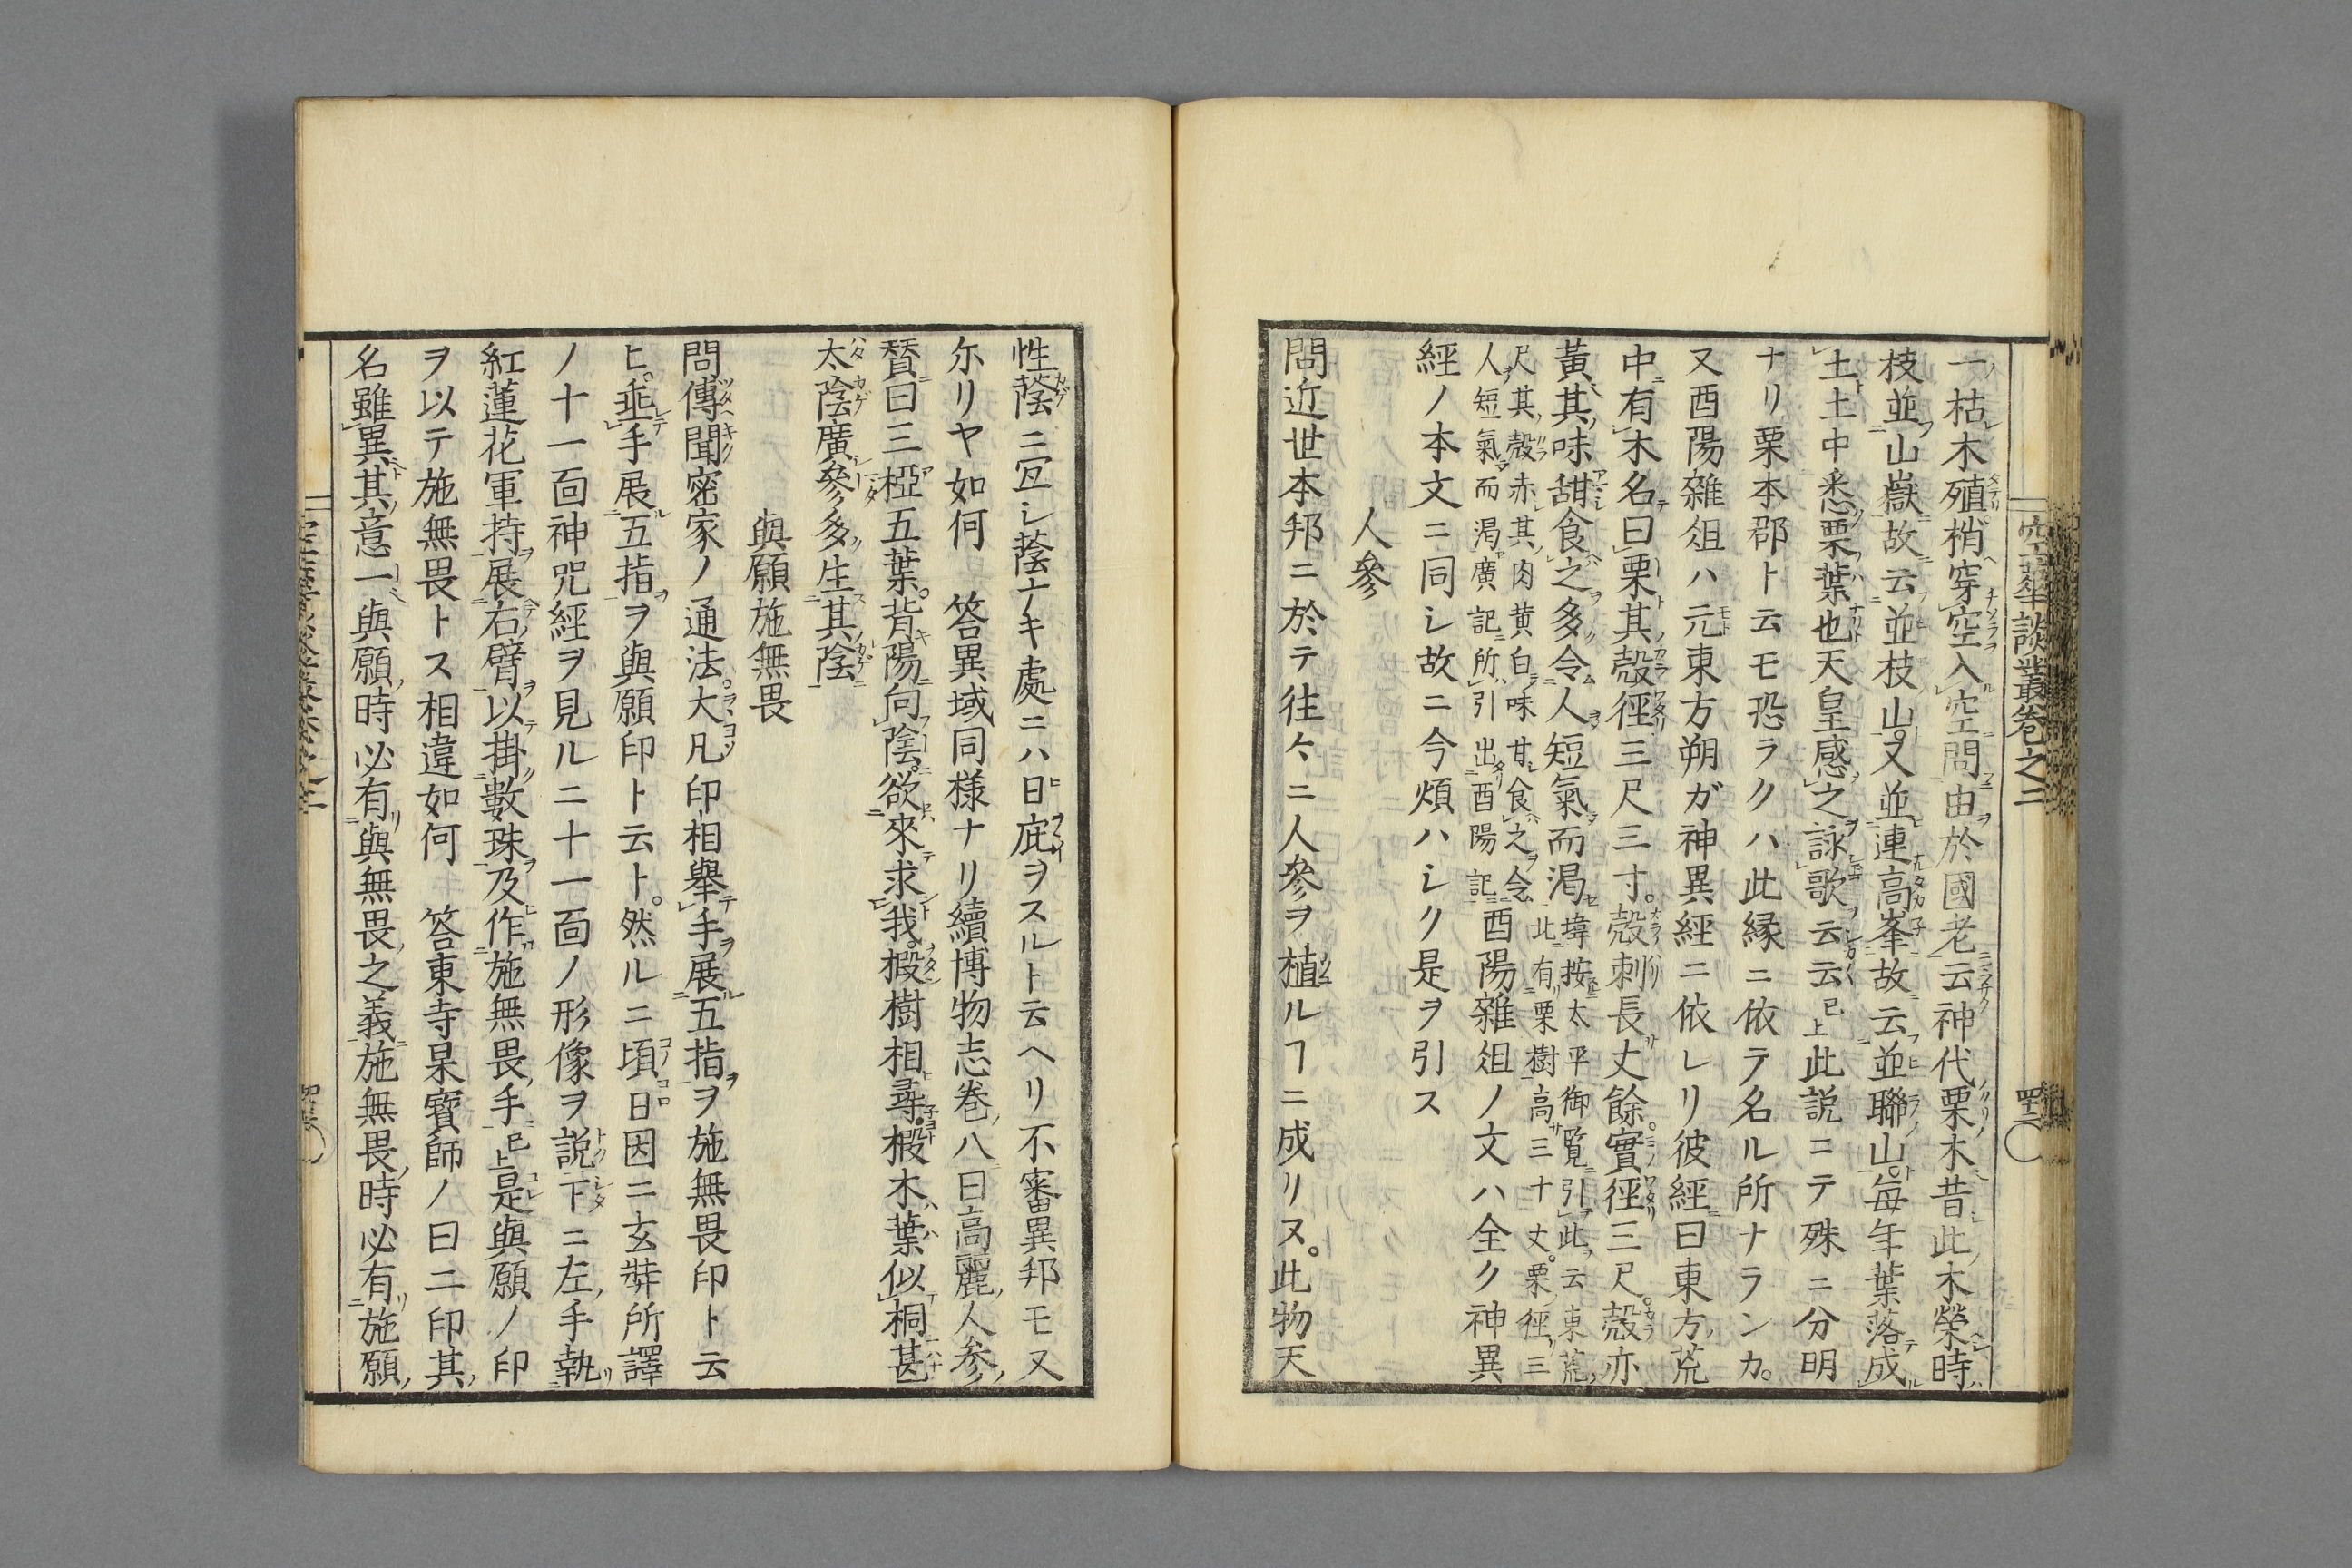 空華談叢卷之二
一枯木殖梢穿空入空問由於國老云神代栗木昔此木榮時
枝並山嶽故云並枝山又並連高峯故云並聯山每年葉落成
土土中悉栗葉也天皇感之詠歌云云已上此説ニテ殊ニ分明
ナリ栗本郡ト云モ恐ラクハ此縁ニ依テ名ル所ナランカ。
又酉陽雜俎ハ元東方朔ガ神異經ニ依レリ彼經曰東方荒
中有木名曰栗其殻徑三尺三寸。殻刺長丈餘。實徑三尺。殻亦
黃其味甜食之多令人短氣而渇
按太平御覧引此云東荒
此有栗樹高三十丈。栗徑三
尺其殻赤其肉黄白味甘食之令
人短氣而渇廣記所引出酉陽記
酉陽雜俎ノ文ハ全ク神異
經ノ本文ニ同シ故ニ今煩ハシク是ヲ引ス
人參
問近世本邦ニ於テ往々ニ人參ヲ植ルヿニ成リヌ。此物天
性蔭ニ宜シ蔭ナキ處ニハ日庇ヲスルト云ヘリ不審異邦モ又
尓リヤ如何　答異域同様ナリ續博物志卷八曰高麗人参
賛曰三椏五葉。背陽向陰。欲來求我。椴樹相尋。椴木葉似桐甚
太陰廣參多生其陰
與願施無畏
問傳聞密家ノ通法。大凡印相舉手展五指ヲ施無畏印ト云
ヒ。垂手展五指ヲ與願印ト云ト。然ルニ頃日因ニ玄奘所譯
ノ十一面神咒經ヲ見ルニ十一面ノ形像ヲ説下ニ左手執
紅蓮花軍持展右臂以掛數珠及作施無畏手已上是與願ノ印
ヲ以テ施無畏トス相違如何　答東寺杲寶師ノ曰二印其
名雖異其意一與願時必有與無畏之義施無畏時必有施願